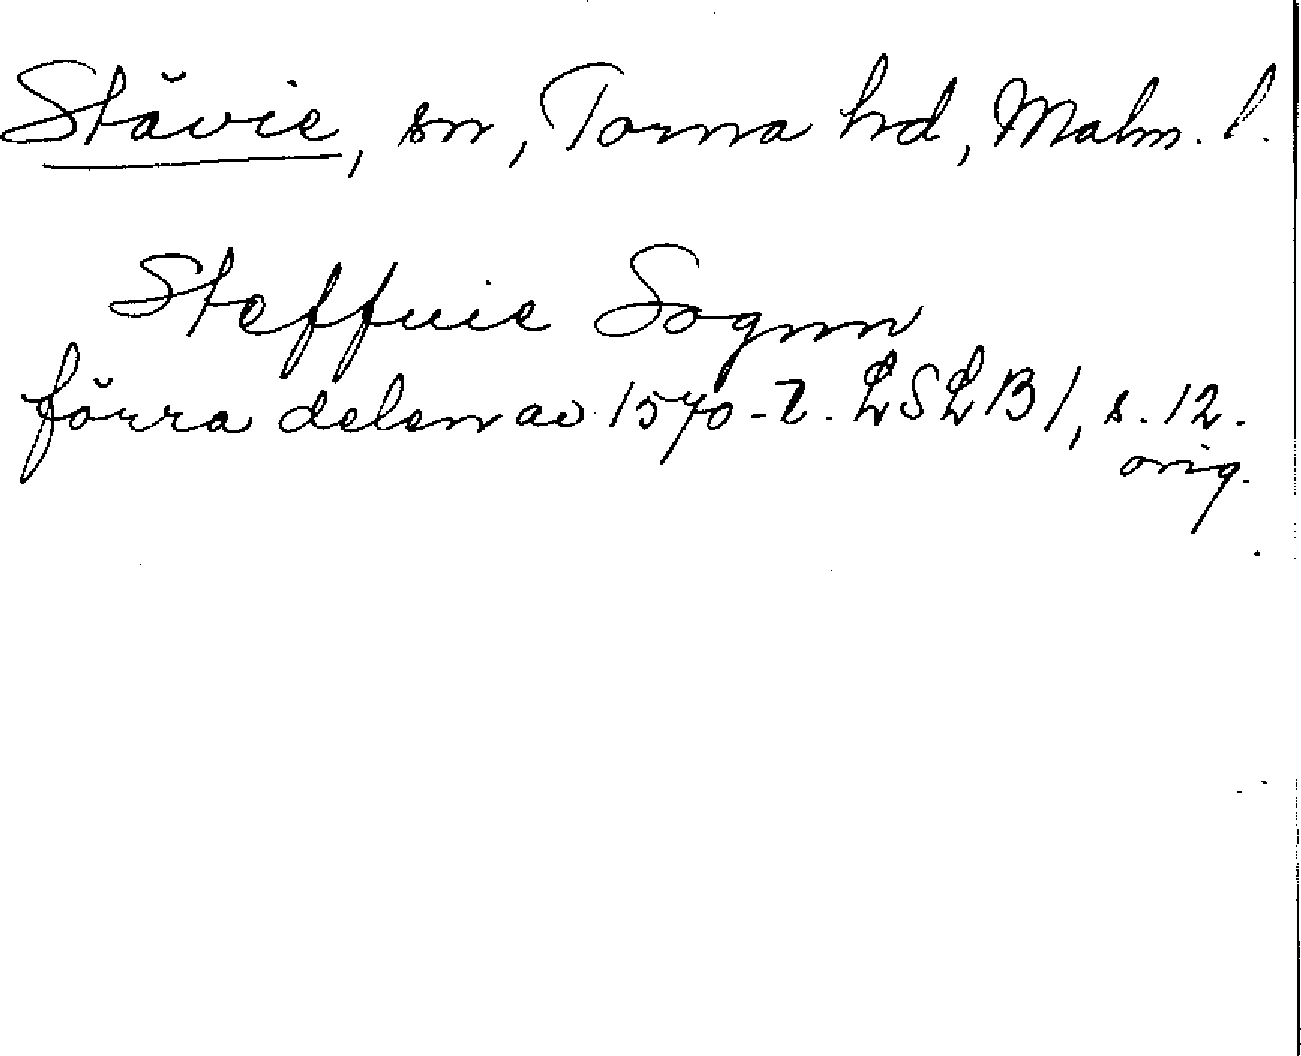 Stävie, sn, Torna hd, Malm. l.
Steffuie Sognn
förra delen av 1570-t. LSLB 1, s. 12.
orig.